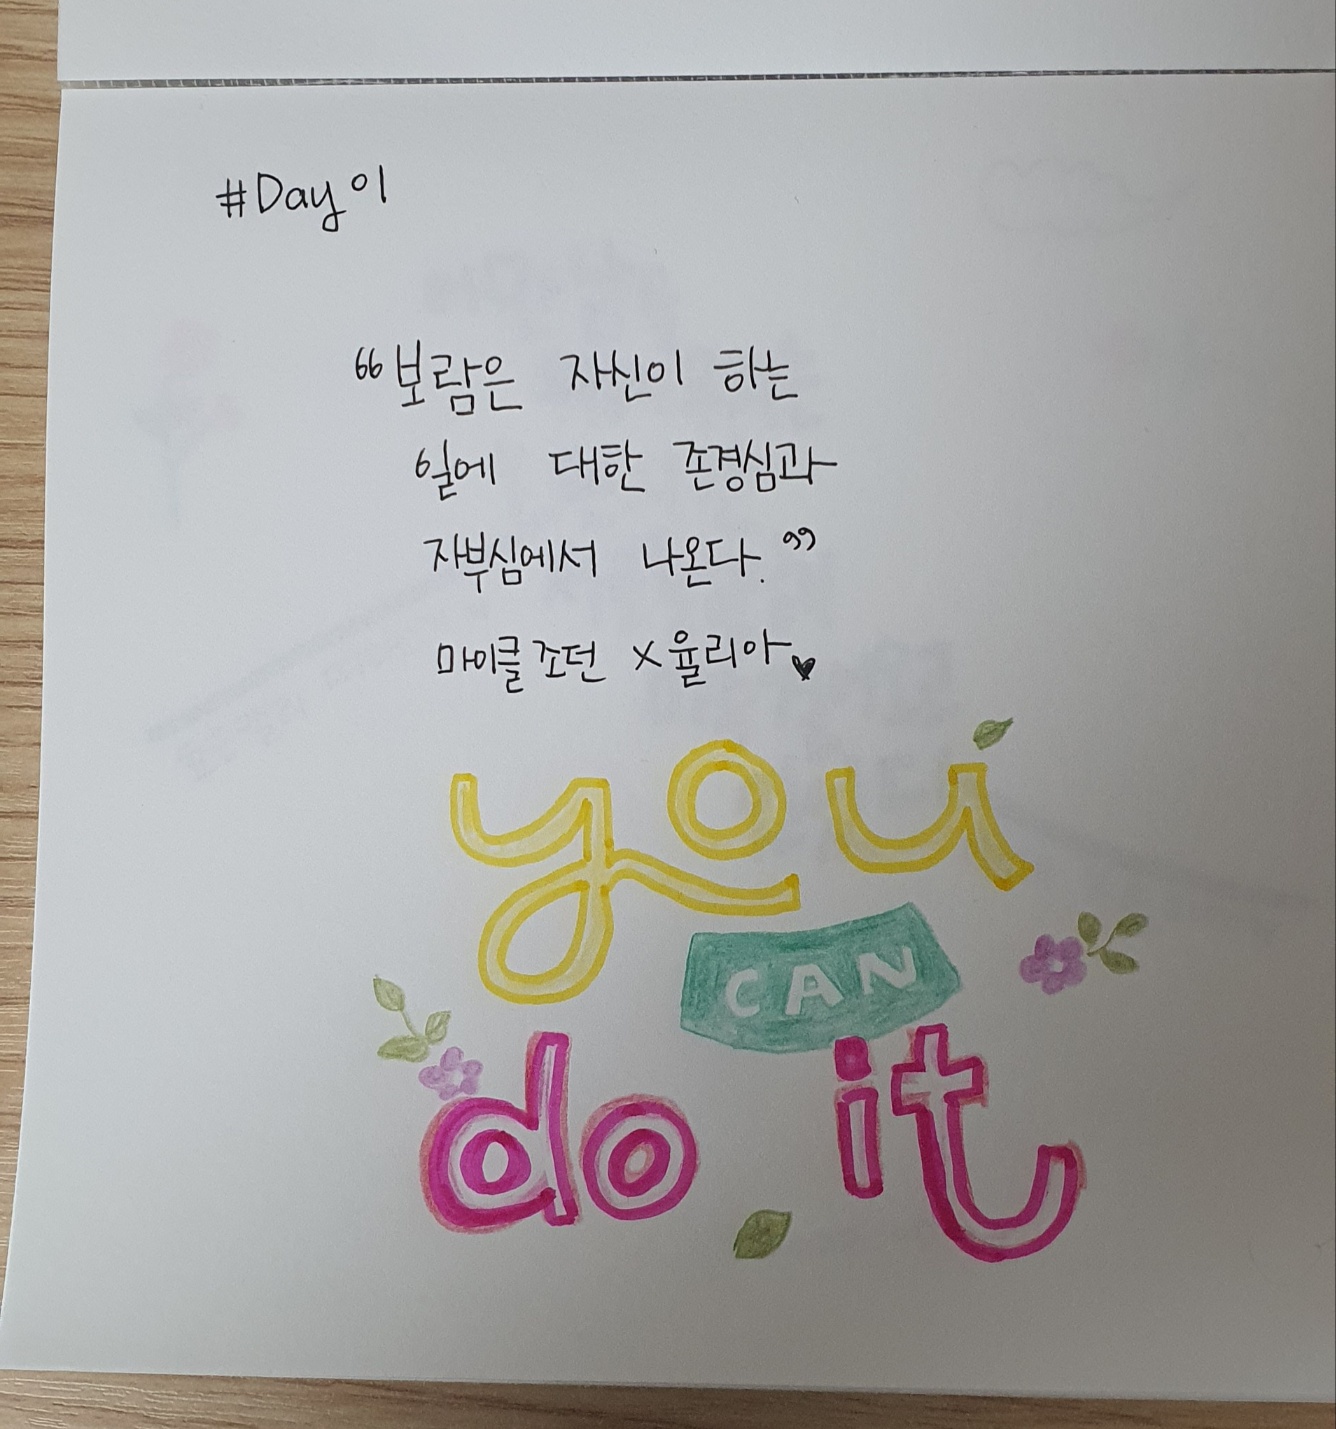 #Day 01
"보람은 자신이 하는
일에 대한 존경심과
자부심에서 나온다."
마이클 조던 x 율리아♥
you
CAN
do it